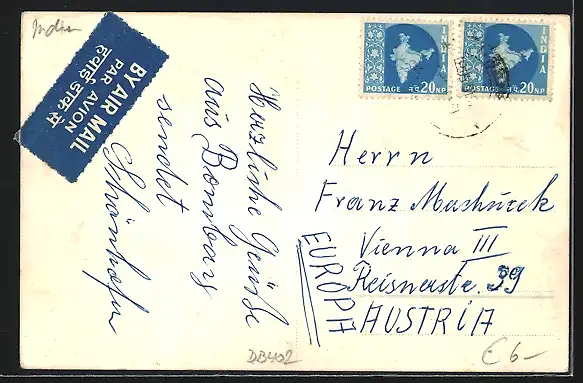 Indien
BY AIR MAIL
PAR AVION
हवाई डाक से
INDIA
POSTAGE न.प.20NP
INDIA
POSTAGE न.प.20NP
Herzliche Grüße
aus Bombay
sendet
Herrn
Franz
Vienna III
Reisnerstr. 39
EUROPA
AUSTRIA
DB402
€ 6-